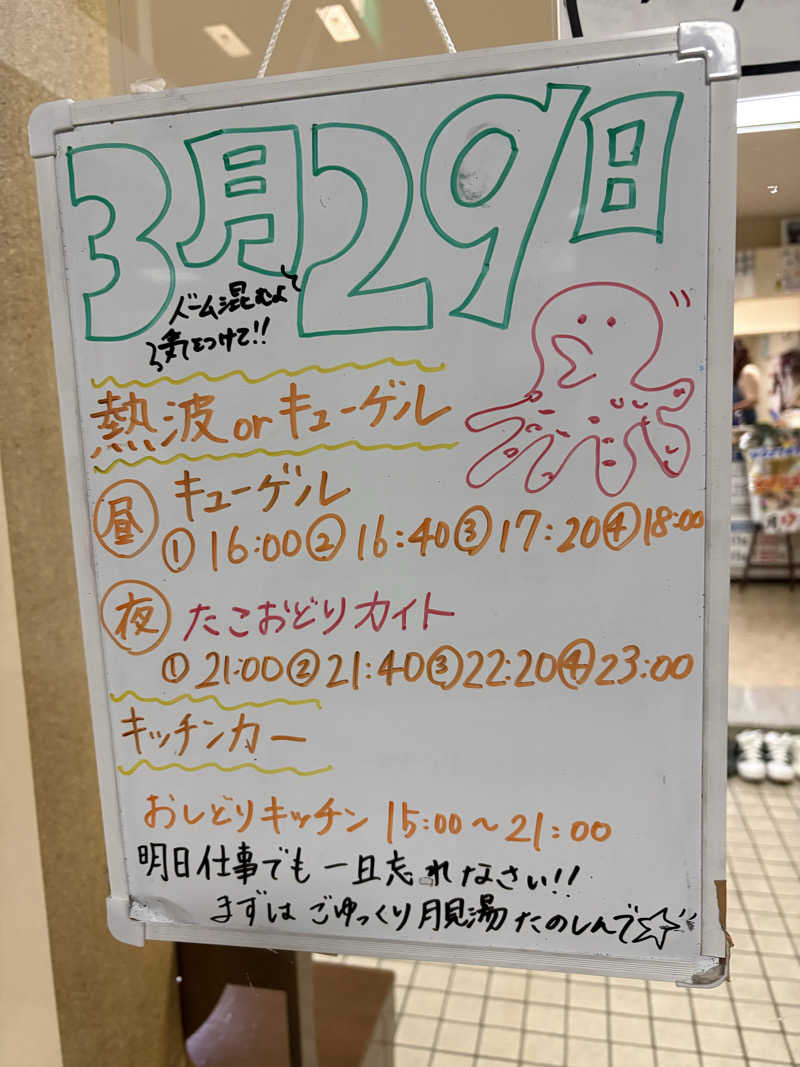 3月29日
ドーム混むよ
気をつけて!!
熱波orキューゲル
昼 キューゲル
①16:00②16:40③17:20④18:00
夜 たこおどりカイト
①21:00②21:40③22:20④23:00
キッチンカー
おしどりキッチン 15:00～21:00
明日仕事でも一旦忘れなさい!!
まずはごゆっくり月見湯たのしんで☆